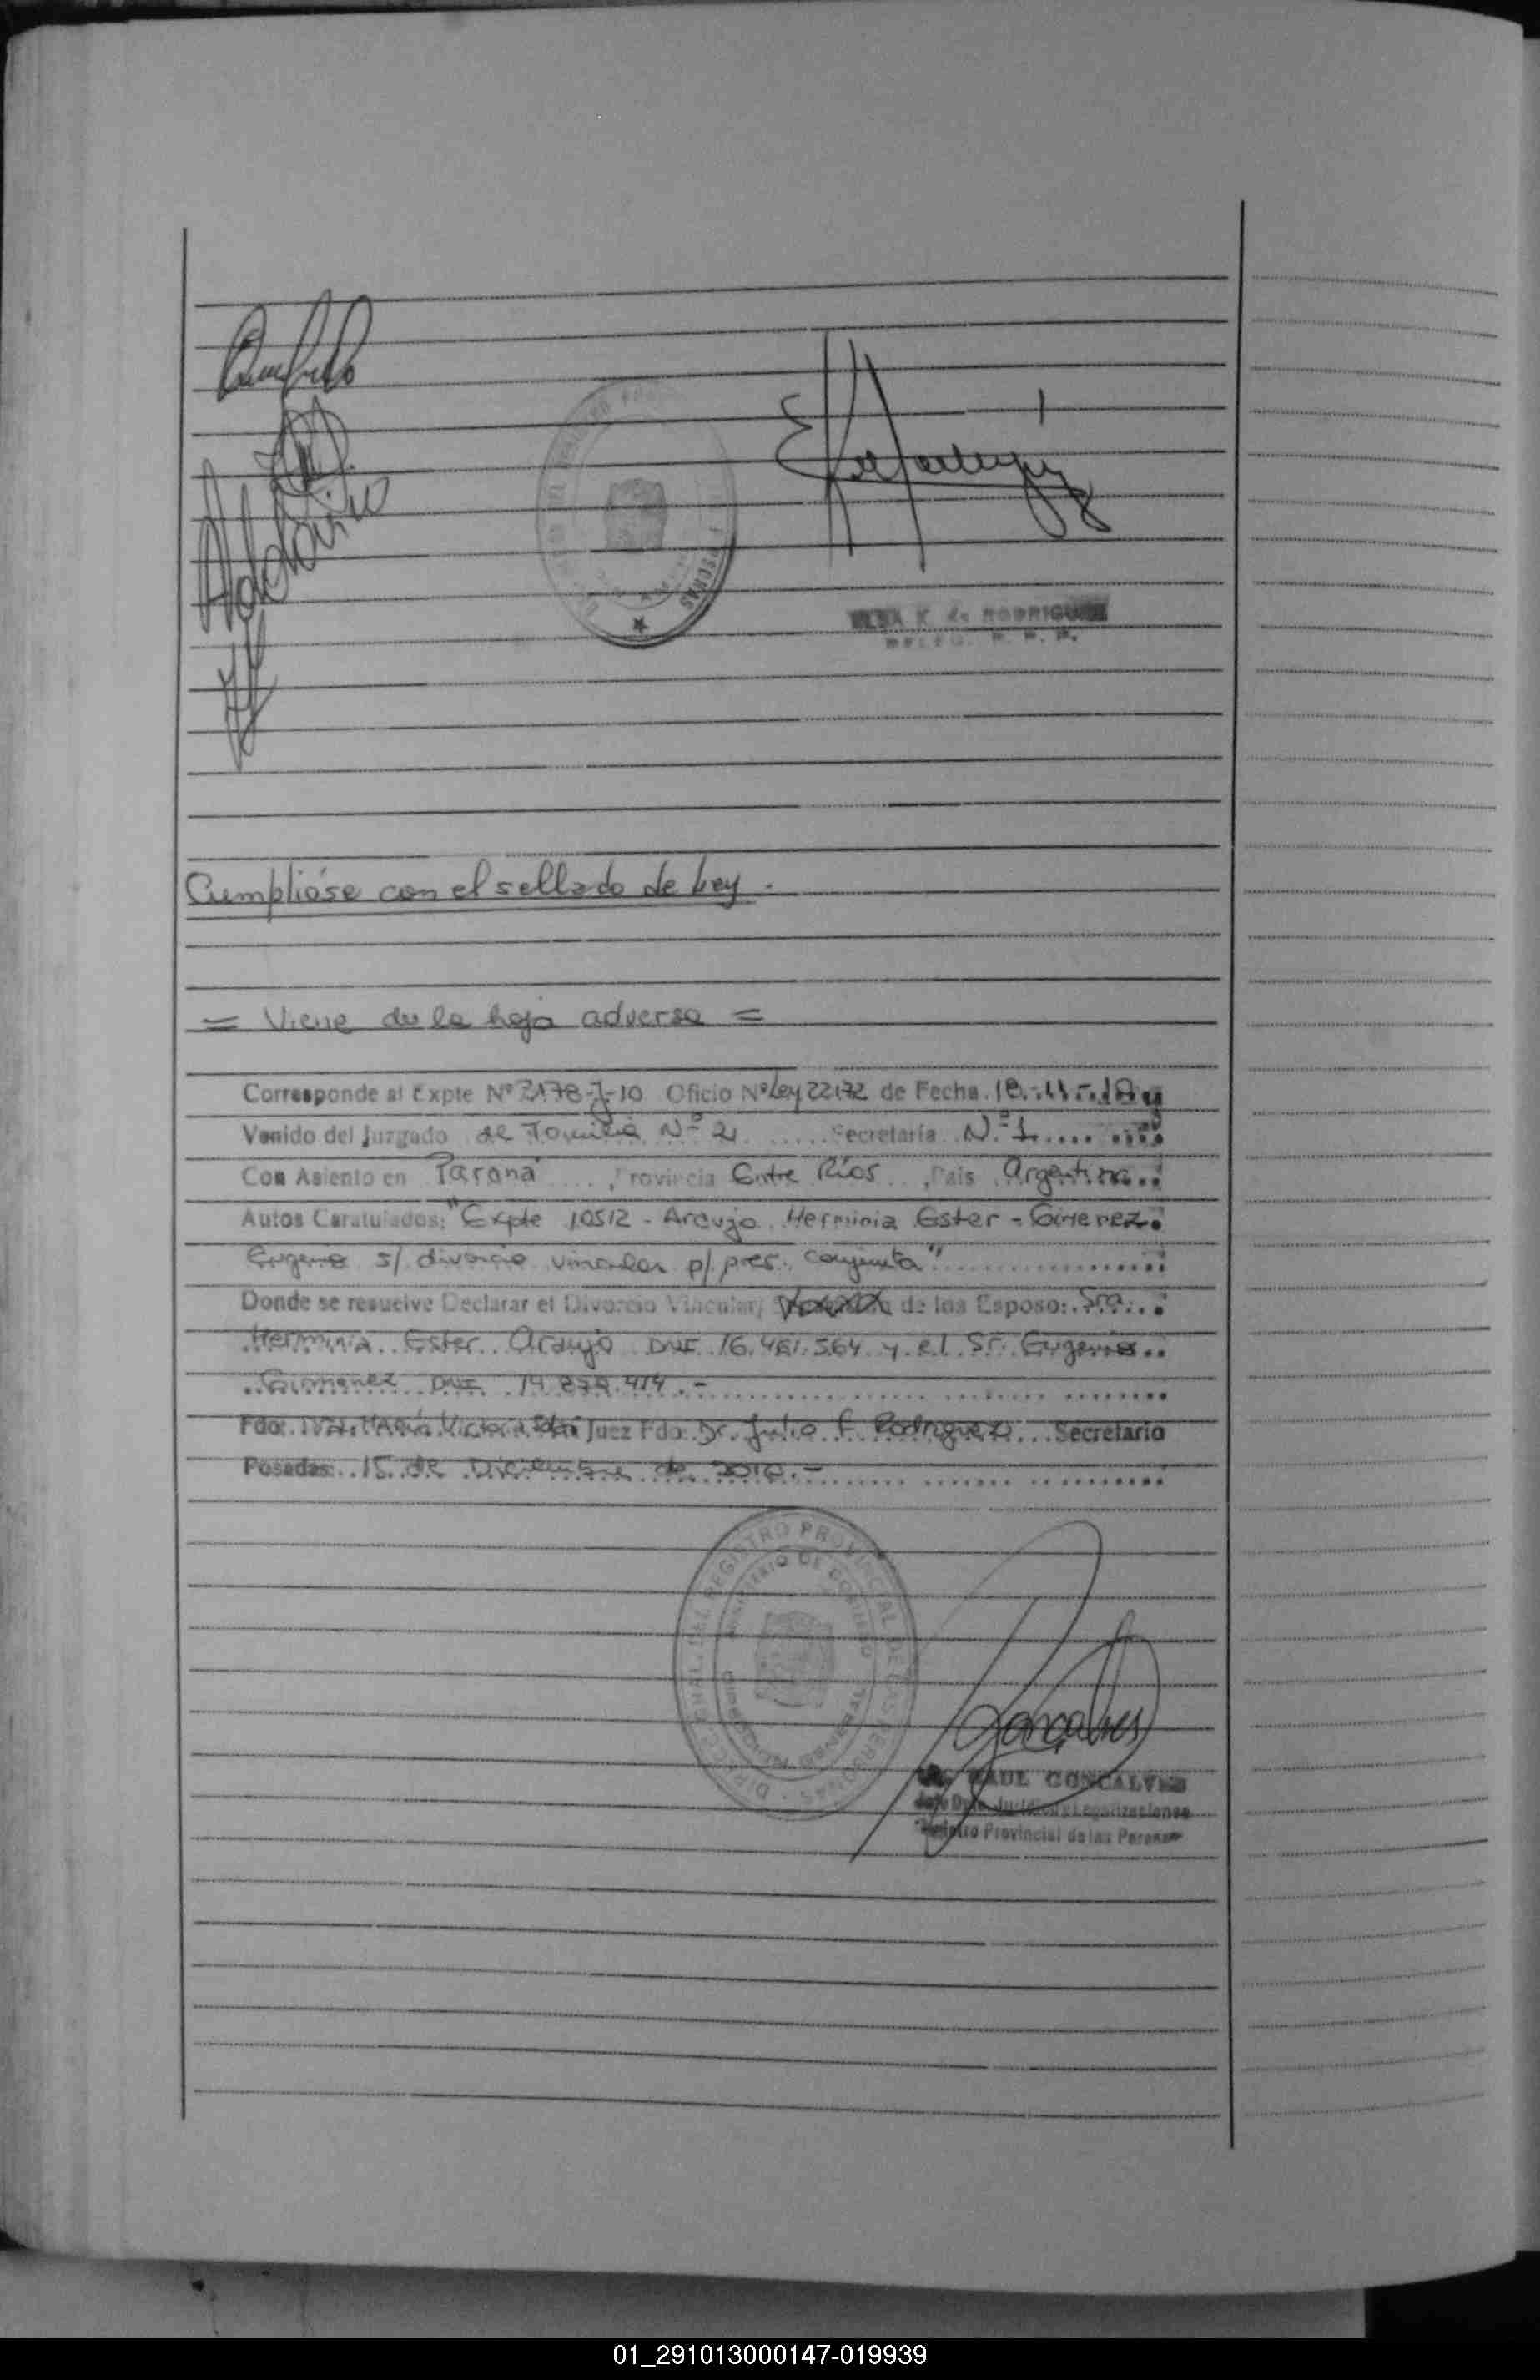 PERSONAS
K. de RODRIGUEZ
Cumplióse con el sellado de Ley.-
= Viene de la hoja adversa =
Corresponde al Expte Nº 3178-J-10 Oficio Nº Ley 22172 de Fecha 18-11-10
Venido del Juzgado de Familia Nº 2 Secretaría Nº 1
Con Asiento en Paraná, Provincia Entre Ríos, País Argentina
Autos Caratulados: "Expte 10512 - Araujo Herminia Ester - Gimenez
Eugenio s/ divorcio vincular p/ pres. conjunta"
Donde se resuelve Declarar el Divorcio Vincular, de los Esposo: Sra.
Herminia Ester Araujo DNI 16.461.564 y el Sr. Eugenio
Gimenez DNI 14.879.414.-
Fdo: Dra. María Victoria Juez Fdo: Dr. Julio F. Rodriguez Secretario
Posadas: 15 de Diciembre de 2010.-
DIRECC. GRAL. DEL REGISTRO PROVINCIAL DE LAS PERSONAS
MINISTERIO DE GOBIERNO
RAUL GONCALVES
Jefe Dpto. Jurídico y Legalizaciones
Registro Provincial de las Personas
01_291013000147-019939